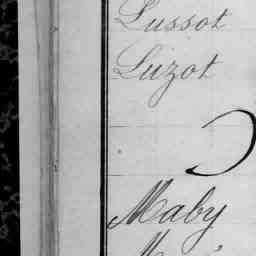 Lussot
Luzot
Maby